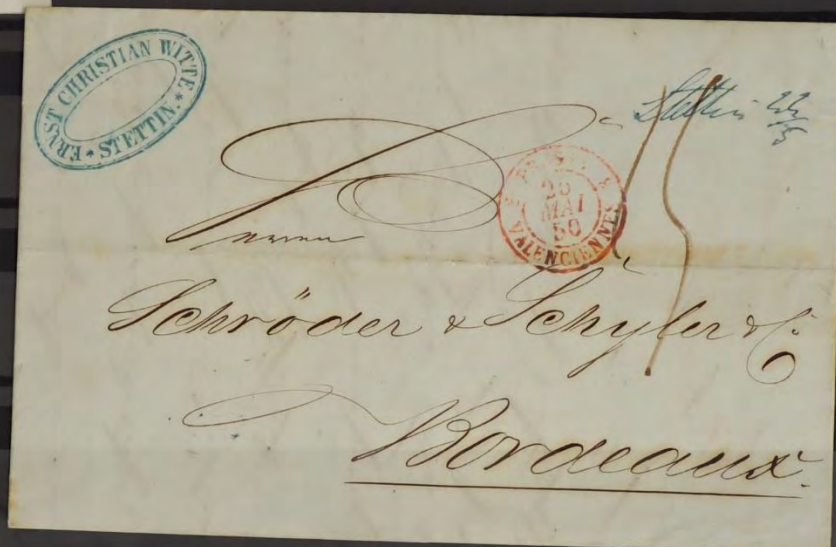 ERNST CHRISTIAN WITTE * STETTIN. *
Stettin 22/5
25
MAI
50
VALENCIENNES
Herren
Schröder & Schÿler & C.
Bordeaux.